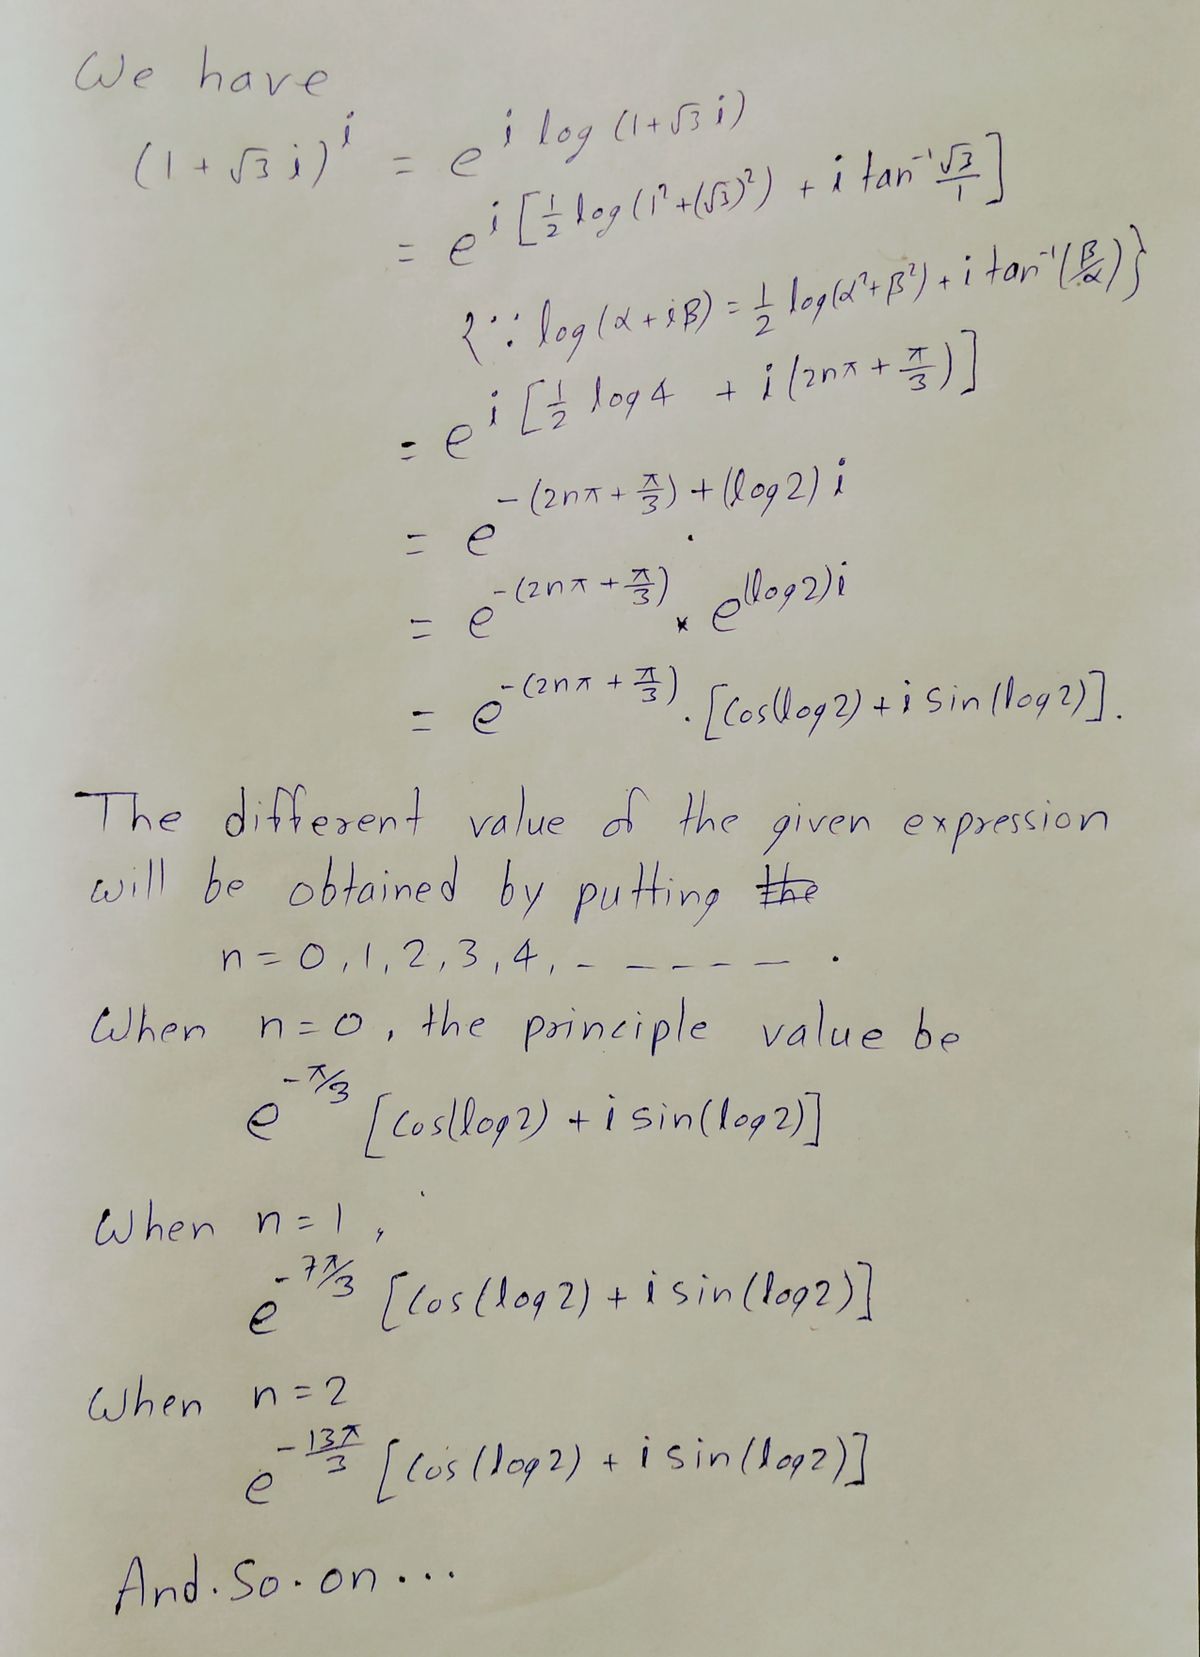 We have
(1 + √3 i)^i = e^{i log (1+√3 i)}
= e^{i [1/2 log (1² + (√3)²) + i tan⁻¹ √3/1]}
{∵ log (α + iβ) = 1/2 log(α² + β²) + i tan⁻¹(β/α)}
= e^{i [1/2 log 4 + i (2nπ + π/3)]}
= e^{-(2nπ + π/3) + (log 2) i}
= e^{-(2nπ + π/3)} × e^{(log 2) i}
= e^{-(2nπ + π/3)} · [Cos(log 2) + i Sin (log 2)].
The different value of the given expression
will be obtained by putting the
n = 0, 1, 2, 3, 4, - - - - - - .
When n = 0, the principle value be
e^{-π/3} [Cos(log 2) + i sin(log 2)]
When n = 1,
e^{-7π/3} [Cos (log 2) + i sin (log 2)]
When n = 2
e^{-13π/3} [Cos (log 2) + i sin (log 2)]
And. So. on ...